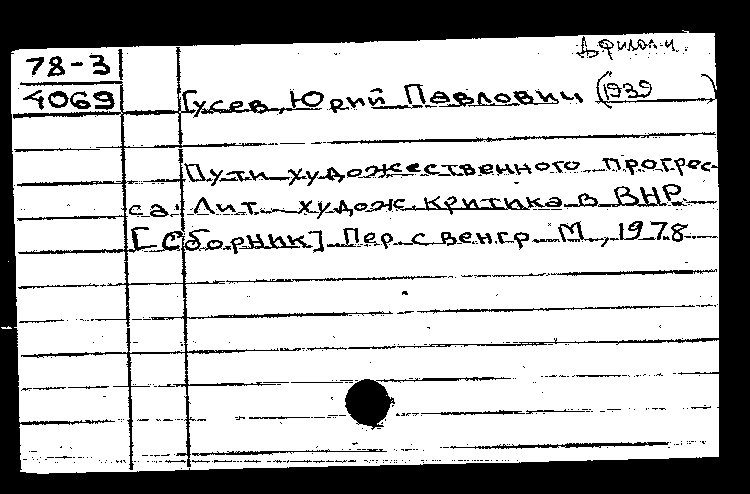 Д.филол.н.
78-3
4069
Гусев, Юрий Павлович (1939 )
Пути художественного прогрес-
са: Лит.-худож. критика в ВНР
[Сборник] Пер. с венгр. М., 1978